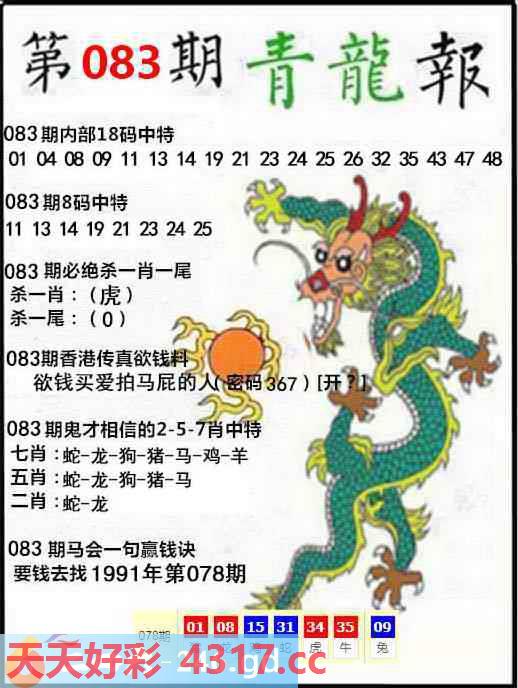 第083期青龍報
083期内部18码中特
01 04 08 09 11 13 14 19 21 23 24 25 26 32 35 43 47 48
083期8码中特
11 13 14 19 21 23 24 25
083期必绝杀一肖一尾
杀一肖：(虎)
杀一尾：(0)
083期香港传真欲钱料
欲钱买爱拍马屁的人(密码367)[开?]
083期鬼才相信的2-5-7肖中特
七肖：蛇-龙-狗-猪-马-鸡-羊
五肖：蛇-龙-狗-猪-马
二肖：蛇-龙
083期马会一句赢钱诀
要钱去找1991年第078期
078期 01 08 15 31 34 35 09
蛇 虎 牛 兔
天天好彩 4317.cc